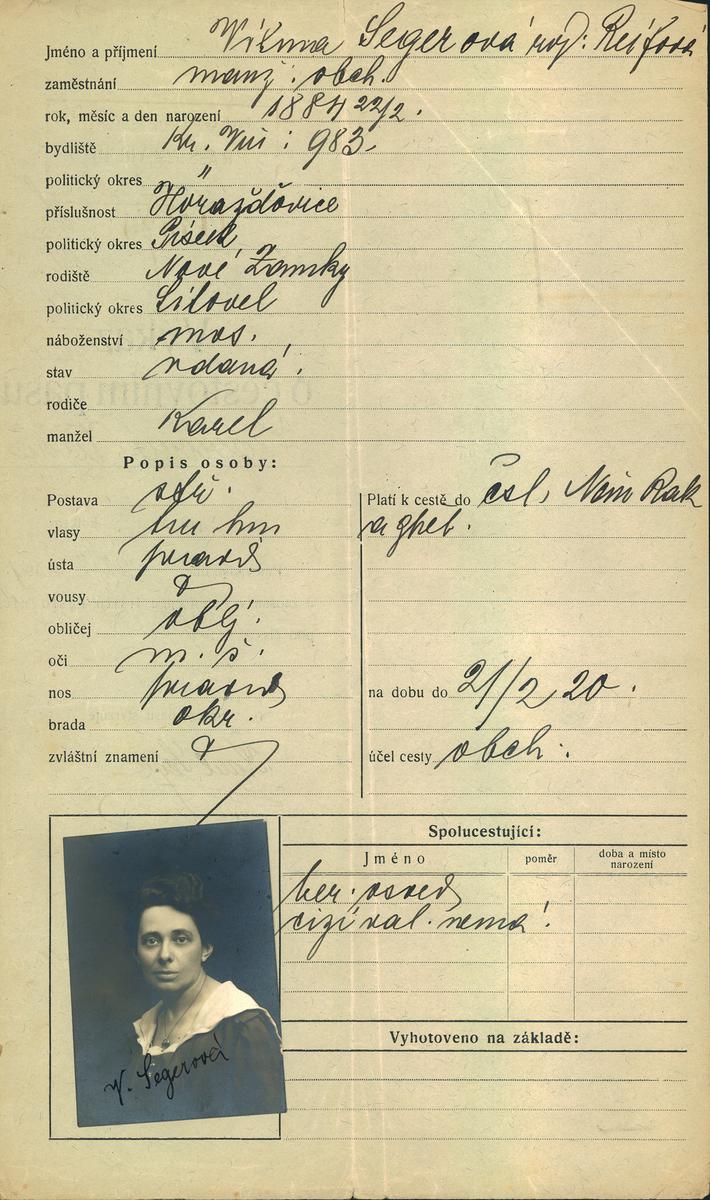 Jméno a příjmení Vilma Segerová roz: Reifová
zaměstnání manž: obch.
rok, měsíc a den narození 1884 22/2.
bydliště Kr. Vin: 983.
politický okres "
příslušnost Horažďovice
politický okres Písek
rodiště Nové Zamky
politický okres Litovel
náboženství mos.
stav vdaná.
rodiče
manžel Karel
Popis osoby:
Postava stř.
vlasy
ústa pravid
vousy
obličej oblý.
oči m. š.
nos pravid
brada okr.
zvláštní znamení
Platí k cestě do čsl, Něm Rak
a zpět.
na dobu do 21/2 20.
účel cesty obch.
Spolucestující:
Jméno
poměr
doba a místo
narození
ber. osved
cizí val. nemá!
Vyhotoveno na základě:
V. Segerová